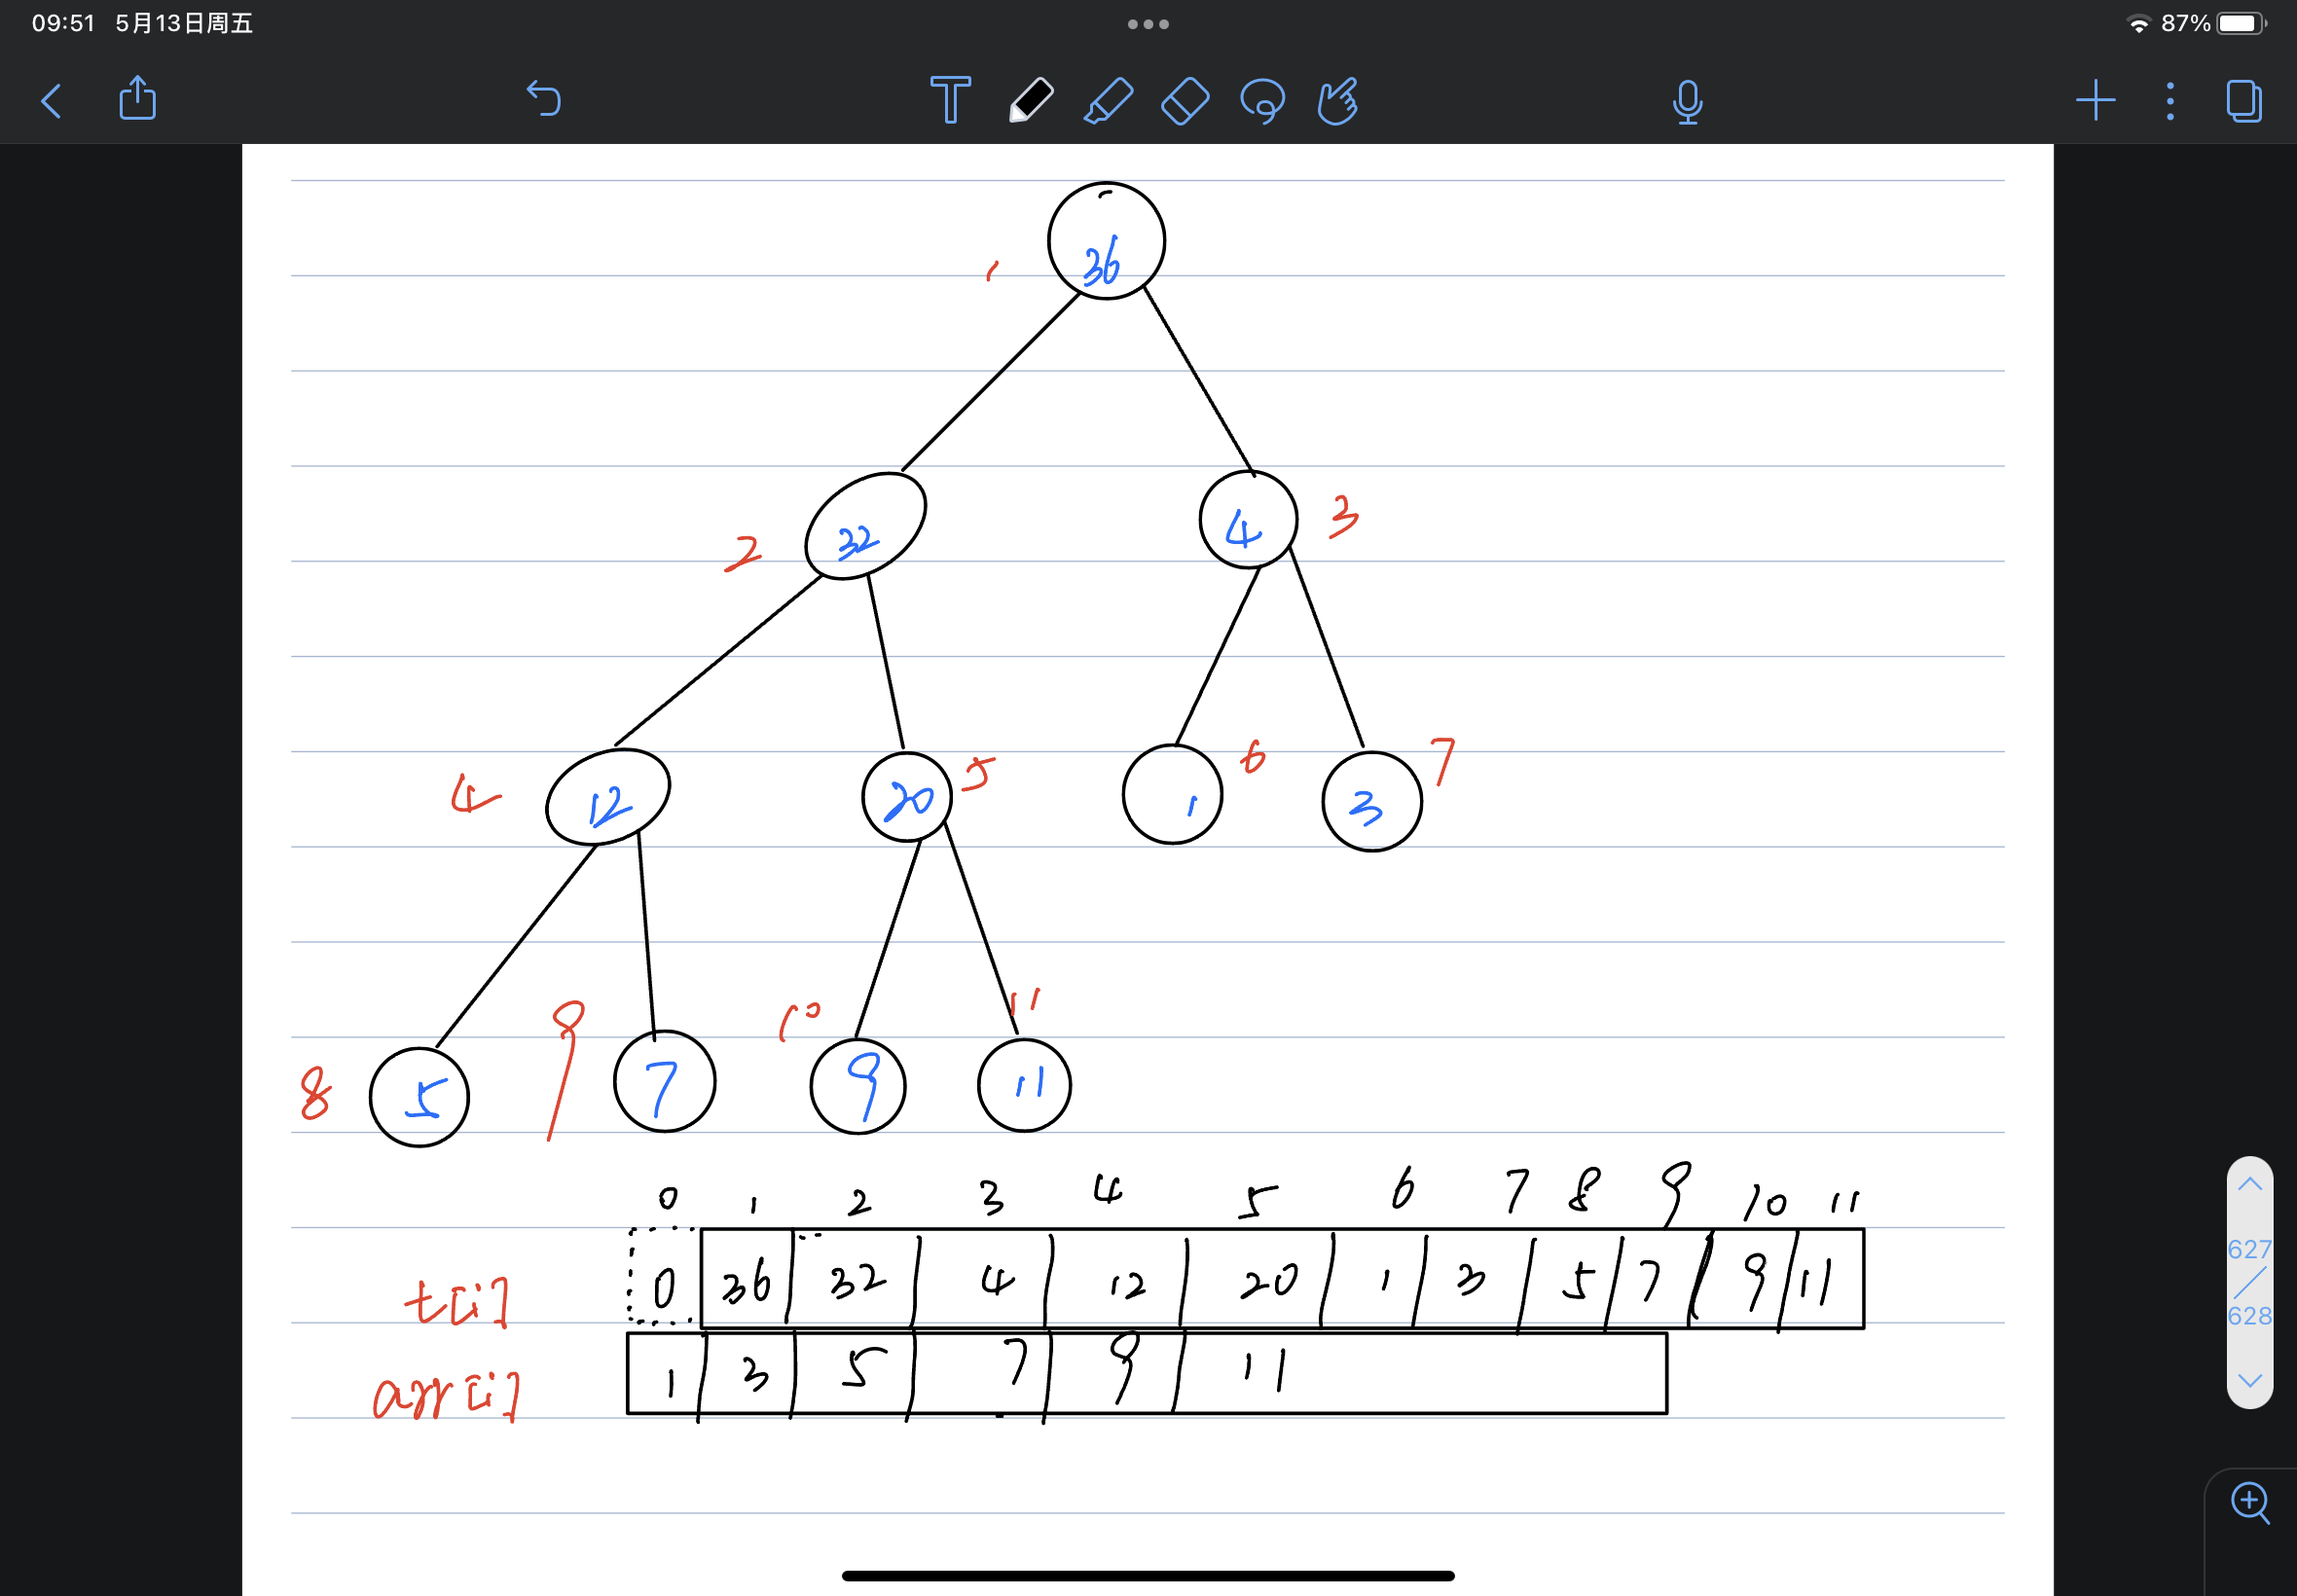 09:51 5月13日周五 87%
36
1
32
2
4
3
4
12
20
5
1
6
3
7
8
5
9
7
10
9
11
11
0 1 2 3 4 5 6 7 8 9 10 11
t[i] 0 36 32 4 12 20 1 3 5 7 9 11
arr[i] 1 3 5 7 9 11
627
628